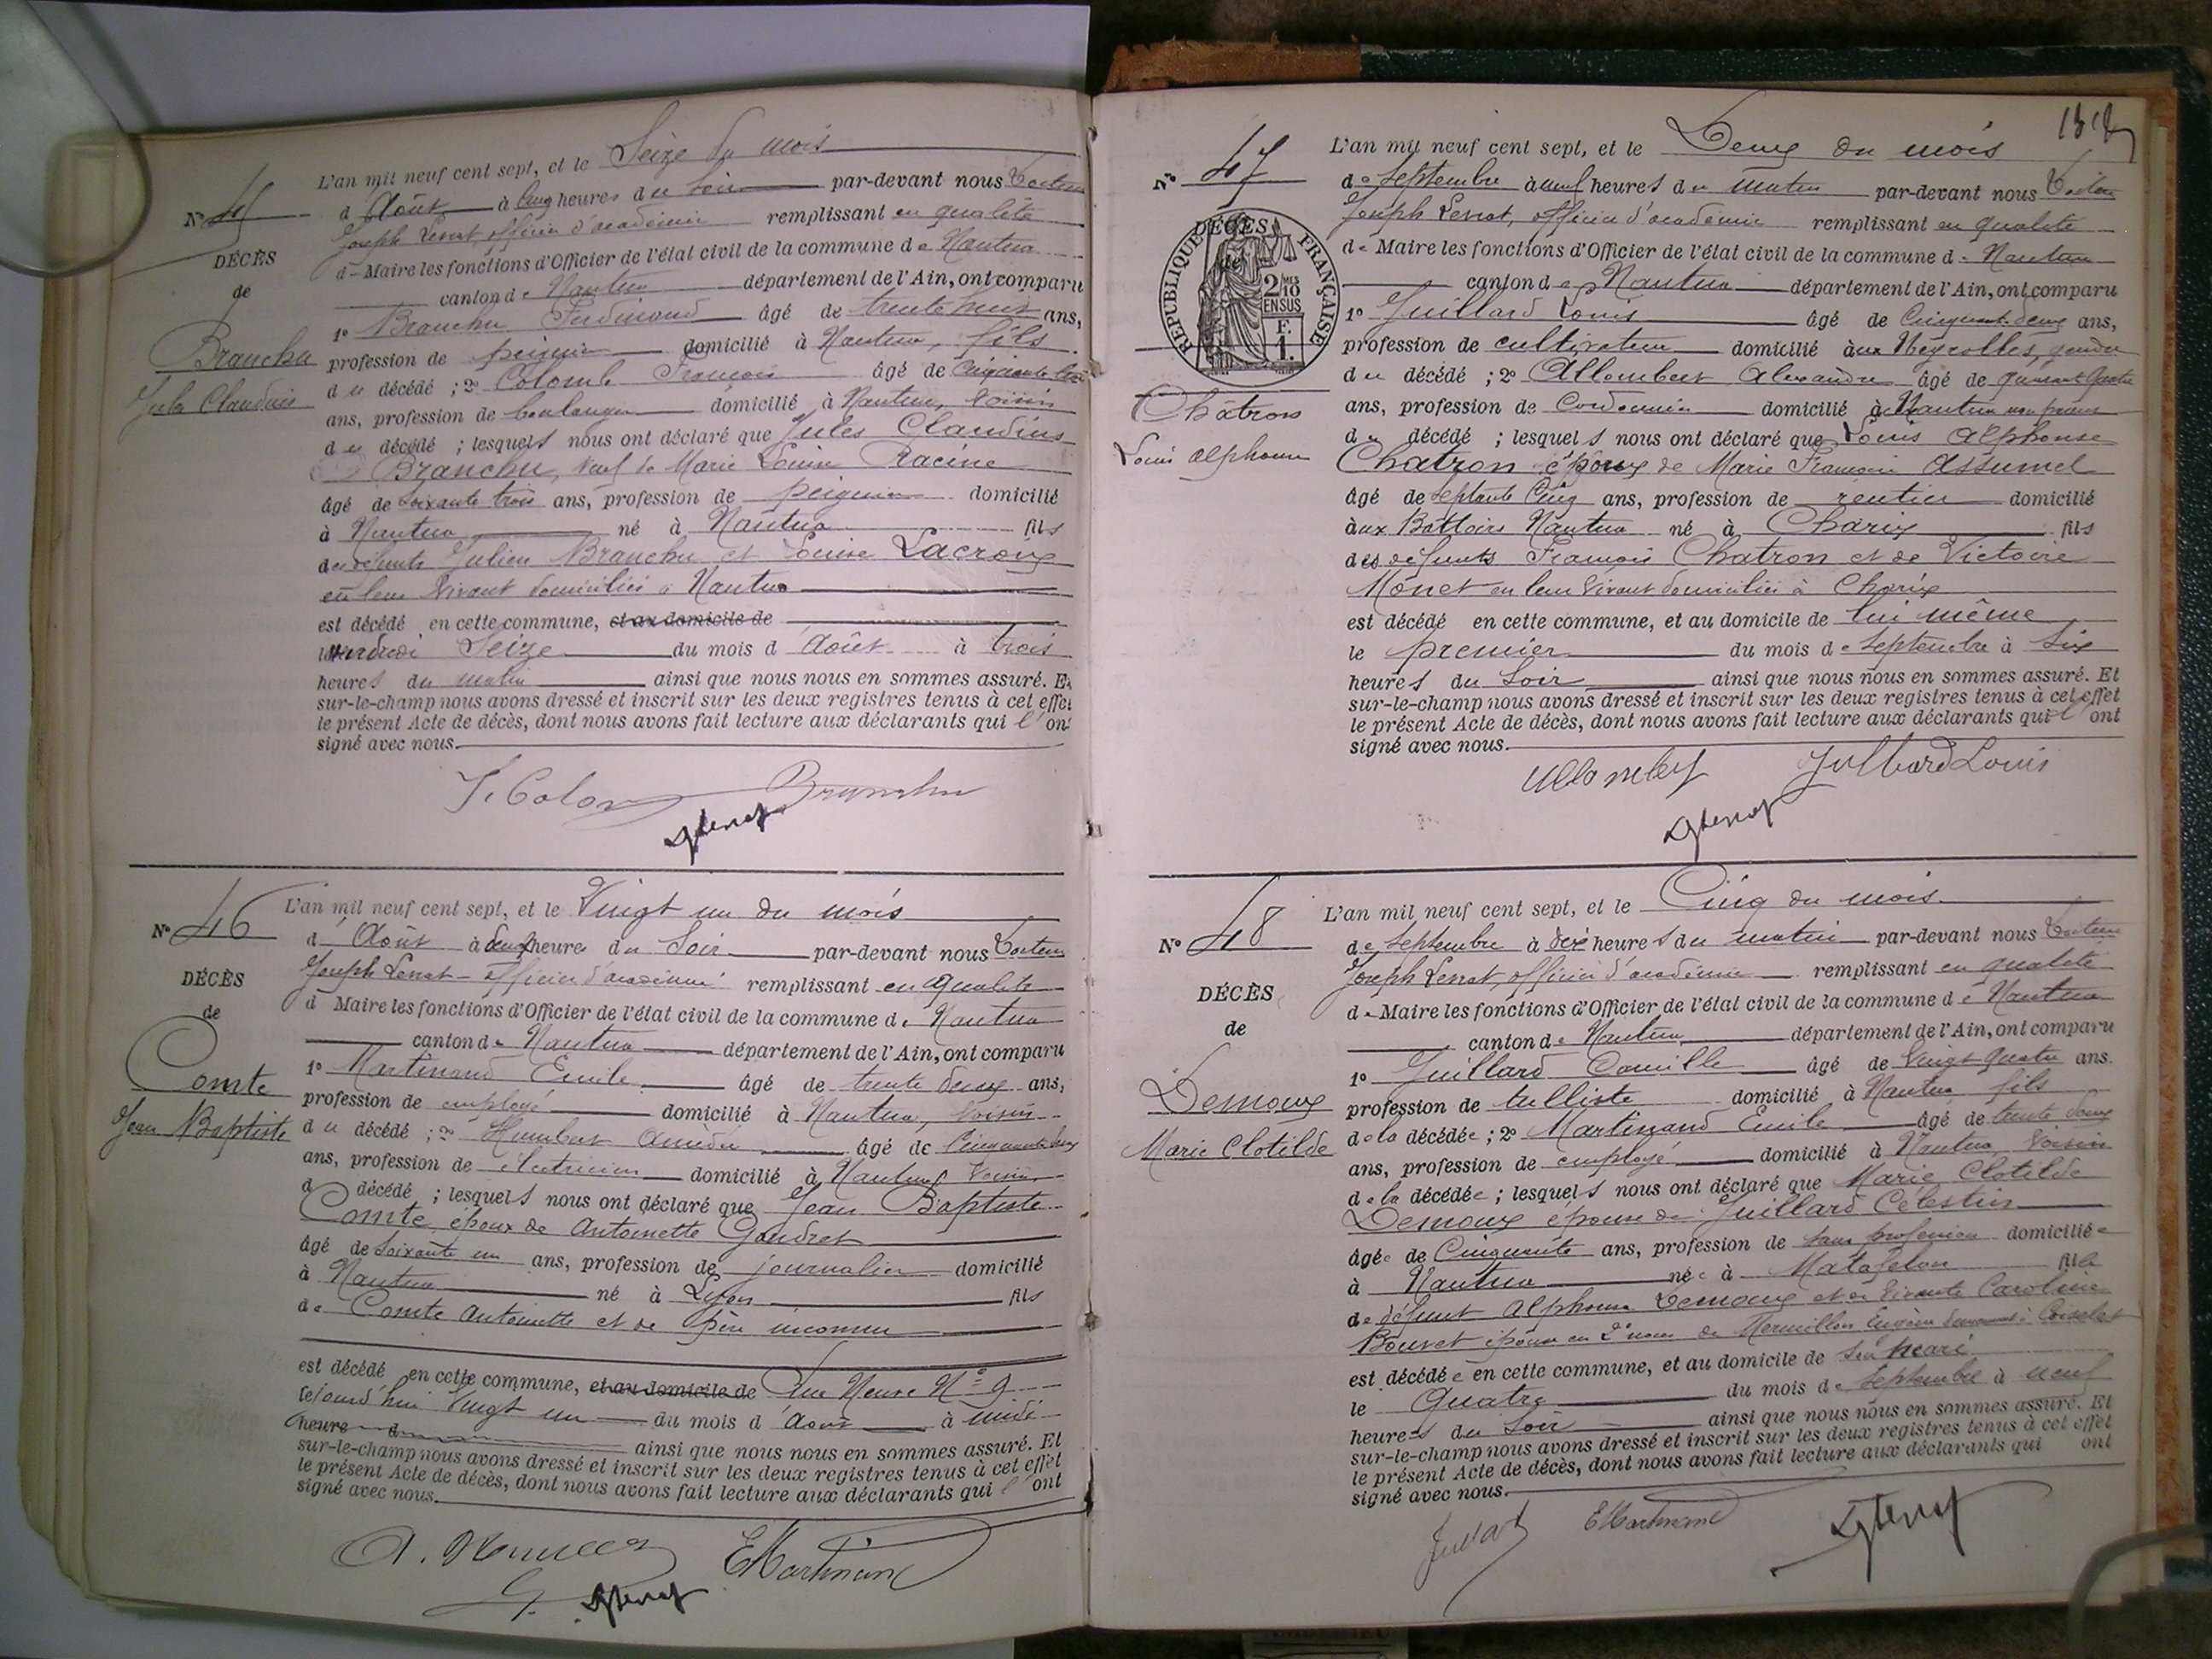 L'an mil neuf cent sept, et le Seize du mois
N° 45
d'Août à Cinq heures du Soir par-devant nous
Joseph officier d'académie remplissant en qualité
DÉCÈS
d e Maire les fonctions d'Officier de l'état civil de la commune d e Nantua
de
canton d e Nantua département de l'Ain, ont comparu
1° Branchu Ferdinand âgé de trente huit ans,
Branchu
profession de peignier domicilié à Nantua, fils
Jules Claudius
d u décédé ; 2° Colomb François âgé de
ans, profession de boulanger domicilié à Nantua, voisin
d u décédé ; lesquels nous ont déclaré que Jules Claudius
Branchu, veuf de Marie Louise Racine
âgé de soixante trois ans, profession de peignier domicilié
à Nantua né à Nantua fils
des défunts Julien Branchu et Louise Lacroix
en leur vivant domiciliés à Nantua
est décédé en cette commune, et au domicile de
Seize du mois d'Août à trois
heures du matin ainsi que nous nous en sommes assuré. Et
sur-le-champ nous avons dressé et inscrit sur les deux registres tenus à cet effet
le présent Acte de décès, dont nous avons fait lecture aux déclarants qui l'ont
signé avec nous.
Branchu
L'an mil neuf cent sept, et le Vingt un du mois
N° 46
d'Août à deux heures du Soir par-devant nous
Joseph officier d'académie remplissant en qualité
DÉCÈS
d Maire les fonctions d'Officier de l'état civil de la commune d e Nantua
de
canton d e Nantua département de l'Ain, ont comparu
Comte
1° Martinand Emile âgé de trente deux ans,
profession de employé domicilié à Nantua, voisin
Jean Baptiste
d u décédé ; 2° Humbert Amédée âgé de
ans, profession de électricien domicilié à Nantua voisin
d décédé ; lesquels nous ont déclaré que Jean Baptiste
Comte époux de Antoinette Gaudret
âgé de soixante un ans, profession de journalier domicilié
à Nantua né à Lyon fils
de Comte Antoinette et de père inconnu
est décédé en cette commune, et au domicile de Rue Neuve N° 9
cejourd'hui Vingt un du mois d'Août à midi
heure d ainsi que nous nous en sommes assuré. Et
sur-le-champ nous avons dressé et inscrit sur les deux registres tenus à cet effet
le présent Acte de décès, dont nous avons fait lecture aux déclarants qui l'ont
signé avec nous.
EMartinand
L'an mil neuf cent sept, et le Deux du mois
N° 47
de Septembre à neuf heures du matin par-devant nous
Joseph officier d'académie remplissant en qualité
DÉCÈS
de
RÉPUBLIQUE FRANÇAISE
2 10 MES EN SUS
F. 1.
d e Maire les fonctions d'Officier de l'état civil de la commune d e Nantua
canton d e Nantua département de l'Ain, ont comparu
1° Juillard Louis âgé de Cinquante deux ans,
profession de cultivateur domicilié aux Neyrolles, gendre
d u décédé ; 2° Allombert Alexandre âgé de quarante quatre
Châtron
ans, profession de Cordonnier domicilié à Nantua non parent
Louis Alphonse
d u décédé ; lesquels nous ont déclaré que Louis Alphonse
Chatron époux de Marie Françoise Assumel
âgé de septante Cinq ans, profession de rentier domicilié
aux Battoirs Nantua né à Charix fils
des défunts François Chatron et de Victoire
Monet en leur vivant domiciliés à Charix
est décédé en cette commune, et au domicile de lui même
le premier du mois de Septembre à Six
heures du Soir ainsi que nous nous en sommes assuré. Et
sur-le-champ nous avons dressé et inscrit sur les deux registres tenus à cet effet
le présent Acte de décès, dont nous avons fait lecture aux déclarants qui l'ont
signé avec nous.
Juillard Louis
L'an mil neuf cent sept, et le Cinq du mois
N° 48
de Septembre à dix heures du matin par-devant nous
Joseph officier d'académie remplissant en qualité
DÉCÈS
d e Maire les fonctions d'Officier de l'état civil de la commune d e Nantua
de
canton d e Nantua département de l'Ain, ont comparu
1° Juillard Camille âgé de Vingt quatre ans.
Demoux
profession de tulliste domicilié à Nantua fils
Marie Clotilde
de la décédée ; 2° Martinand Emile âgé de trente deux
ans, profession de employé domicilié à Nantua, voisin
de la décédée ; lesquels nous ont déclaré que Marie Clotilde
Demoux épouse de Juillard Célestin
âgée de Cinquante ans, profession de sans profession domiciliée
à Nantua née à Matafelon fille
de défunt Alphonse Demoux et de vivante Caroline
Bouvet épouse en 2e noces de Mermillon Eugène
est décédée en cette commune, et au domicile de son mari
le Quatre du mois de Septembre à neuf
heures du Soir ainsi que nous nous en sommes assuré. Et
sur-le-champ nous avons dressé et inscrit sur les deux registres tenus à cet effet
le présent Acte de décès, dont nous avons fait lecture aux déclarants qui ont
signé avec nous.
EMartinand